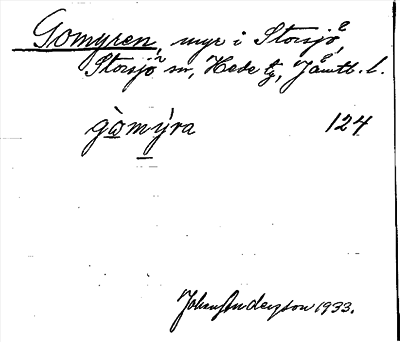 Gomyren, myr i Storsjö,
Storsjö sn, Hede tg, Jämtl. l.
gòmýra 124
Johan Anderzson 1933.